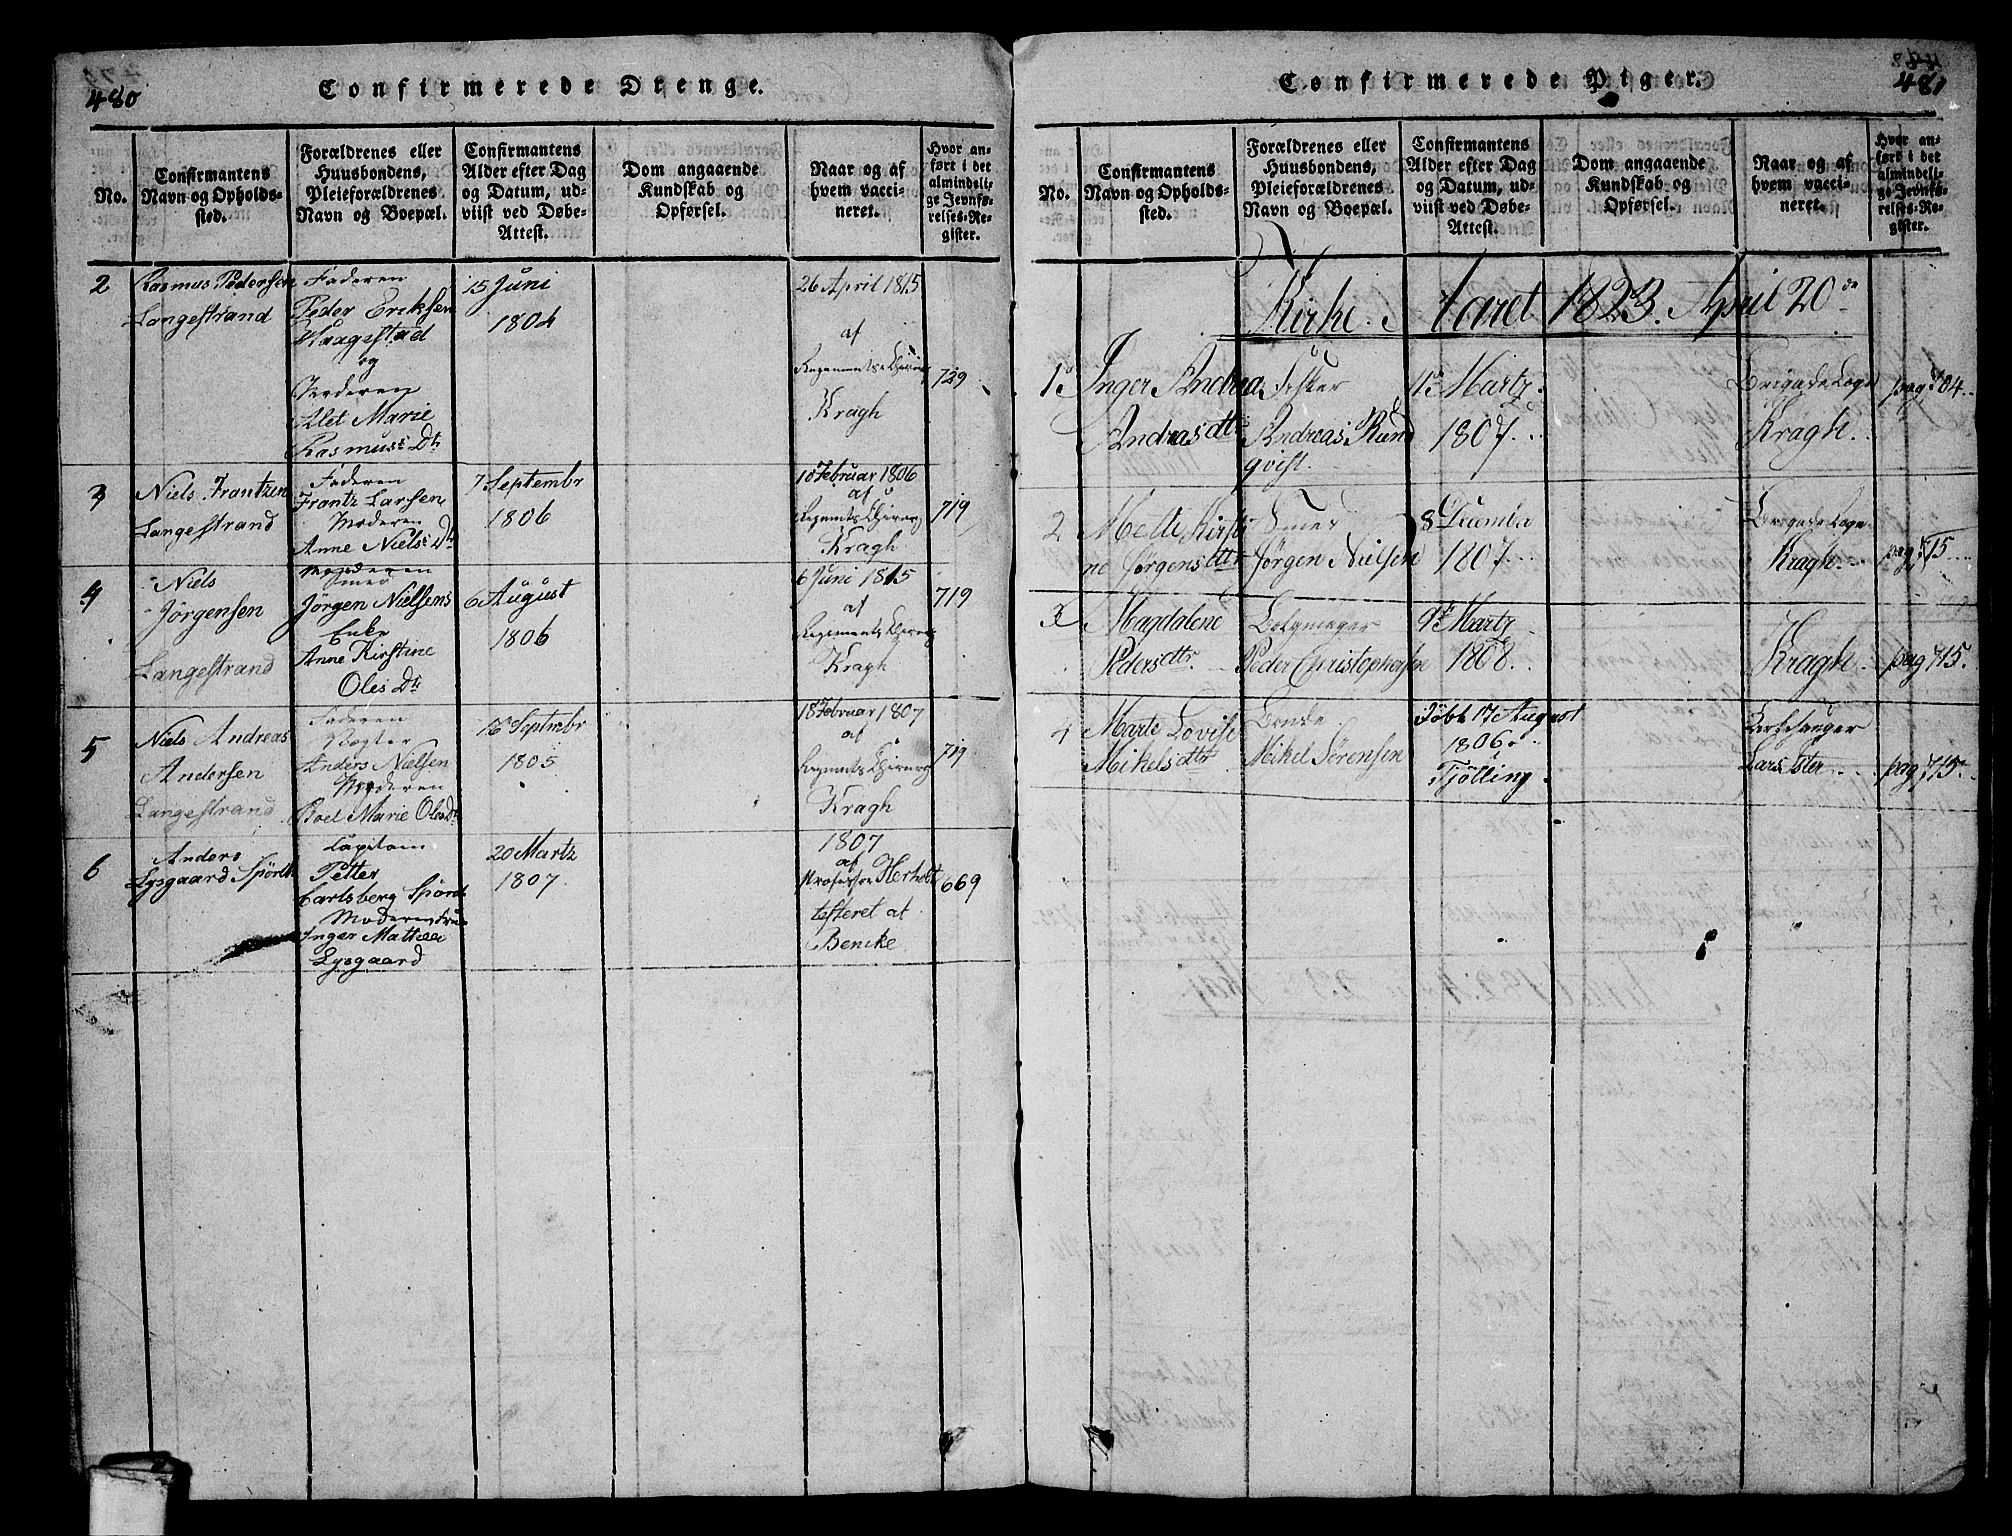 480
Confirmerede Drenge.
No.
Confirmantens
Navn og Opholds-
sted.
Forældrenes eller
Huusbondens,
Pleieforældrenes
Navn og Boepæl.
Confirmantens
Alder efter Dag
og Datum, ud-
viist ved Døbe-
Attest.
Dom angaaende
Kundskab og
Opførsel.
Naar og af
hvem vacci-
neret.
Hvor an-
ført i det
almindeli-
ge Jevnfø-
relses-Re-
gister.
2
Rasmus Pedersen
Langestrand
Faderen
Peder Eriksen
Haagestad
og
Moderen
Alet Marie
Rasmuss Dtr
15 Juni
1804
26 April 1815
af
Regiments Chirurg
Kragh
729
3
Niels Frantzen
Langestrand
Faderen
Frantz Larsen
Moderen
Anne Niels Dtr
7 Septembr
1806
10 Februar 1806
af
Regiments Chirurg
Kragh
719
4
Niels
Jörgensen
Langestrand
Moderen
Smed
Jörgen Nielsens
Enke
Anne Kirstine
Oles Dtr
6 August
1806
6 Juni 1815
af
Regiments Chirurg
Kragh
719
5
Niels Andreas
Andersen
Langestrand
Faderen
Vægter
Anders Nielsen
Moderen
Boel Marie Oles Dtr
16 Septembr
1805
18 Februar 1807
af
Regments Chirurg
Kragh
719
6
Anders
Lysgaard Spörck
Capitain
Petter
Carlsberg Spörck
Moderen Frue
Inger Mathea
Lysgaard
20 Martz
1807
1807
af
Professor Herholt
testeret at
Bencke
669
481
Confirmerede Piger.
No.
Confirmantens
Navn og Opholds-
sted.
Forældrenes eller
Huusbondens,
Pleieforældrenes
Navn og Boepæl.
Confirmantens
Alder efter Dag
og Datum, ud-
viist ved Døbe-
Attest.
Dom angaaende
Kundskab og
Opførsel.
Naar og af
hvem vacci-
neret.
Hvor an-
ført i det
almindeli-
ge Jevnfø-
relses-Re-
gister.
Kirke. Aaret 1823. April 20de
1
Inger Andrea
Andreasdtr
Fisker
Andreas Rund
qvist.
11te Martz
1807
Brigade Læge
Kragh.
pag 704
2
Mette Kirsti
ne Jörgensdtr
Smed
Jörgen Nielsen
8 Decemb.
1807
Brigade Læge
Kragh.
pag 715
3
Magdalene
Pedersdtr
Belgmager
Peder Christophersen
9de Martz
1808
Kragh.
pag 715.
4
Marte Lovise
Mikelsdtr
Bonde
Mikel Sörensen
Föbt 17 August
1806
Tjölling.
Kirkesanger
Lars
pag 715.